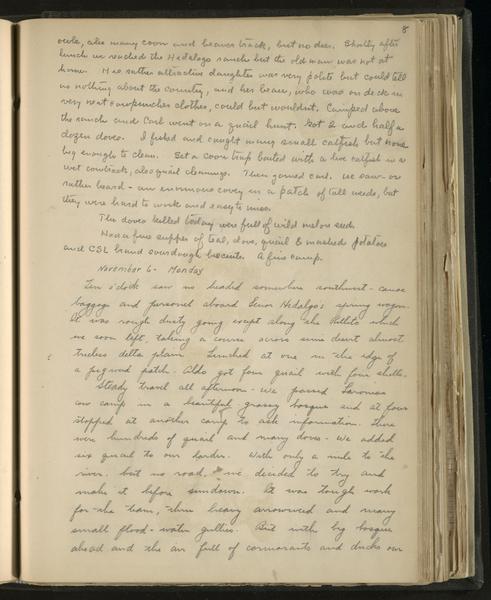 8
owls, also many coon and beaver track, but no deer. Shortly after
lunch we reached the Hidalgo ranch but the old man was not at
home. His rather attractive daughter was very polite but could tell
us nothing about the country, and her beau, who was on deck in
very neat cowpuncher clothes, could but wouldnt. Camped above
the ranch and Carl went on a quail hunt. Got 2 and half a
dozen doves. I fished and caught many small catfish but none
big enough to clean. Set a coon trap baited with a live catfish in a
wet cowtrack, also quail cleanings. Then joined Carl. We saw - or
rather heard - an enormous covey in a patch of tall weeds, but
they were hard to work and easy to miss.
The doves killed today were full of wild melon seeds.
Had a fine supper of teal, dove, quail & mashed potatoes
and CSL brand sourdough biscuits. A fine camp.
November 6 - Monday
Ten o'clock saw us headed somewhere southwest - canoe
baggage and personnel aboard Senor Hidalgo's spring wagon.
It was rough dusty going except along the Rillito which
we soon left, taking a course across semi desert almost
treeless delta plain. Lunched at one in the edge of
a pigweed patch. Aldo got four quail with four shells.
Steady travel all afternoon. We passed
cow camp in a beautiful grassy bosque and at four
stopped at another camp to ask information. There
were hundreds of quail and many doves. We added
six quail to our larder. With only a mile to the
river, but no road, we decided to try and
make it before sundown. It was tough work
for the team, thru heavy arrowweed and many
small flood-water gullies. But with big bosque
ahead and the air full of cormorants and ducks our